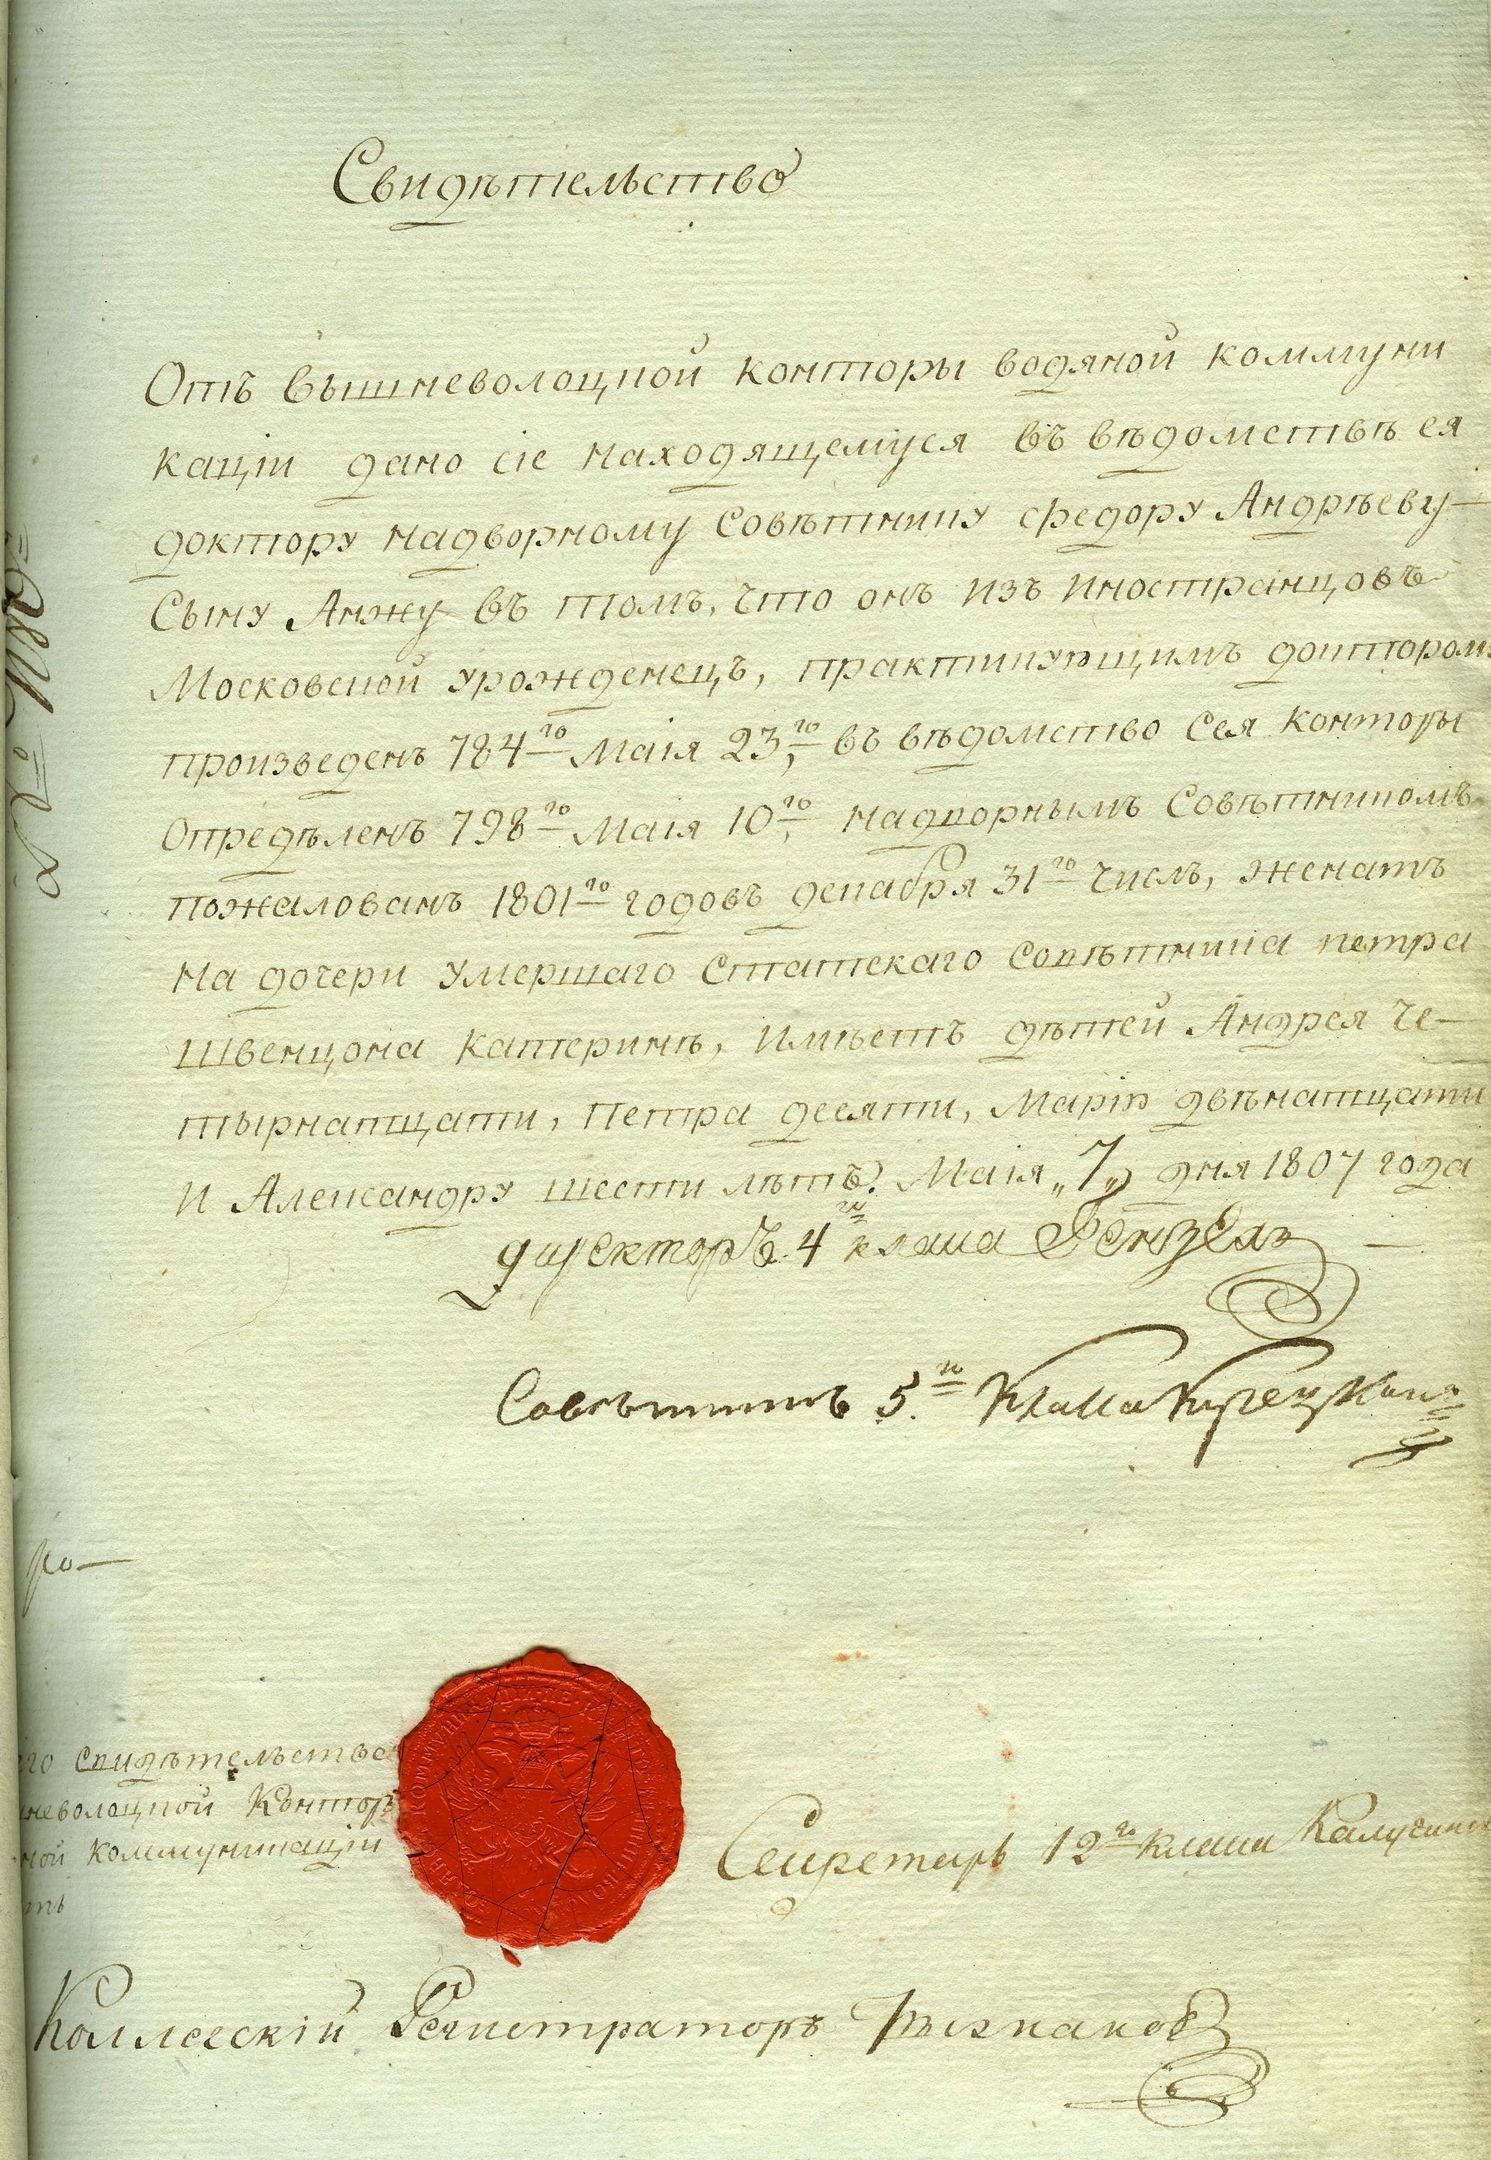 Свидѣтельство
Отъ вышневолоцкой конторы водяной коммуни
каціи дано сіе находящемуся въ вѣдомствѣ ея
доктору надворному Совѣтнику Федору Андрѣеву
Сыну Анжу въ томъ, что онъ изъ иностранцовъ
Московской урожденецъ, практикующимъ докторомъ
произведенъ 784го Маія 23го, въ вѣдомство Сея Конторы
Опредѣленъ 798го Маія 10го, надворнымъ Совѣтникомъ
пожалованъ 1801го годовъ декабря 31го числъ, женатъ
на дочери умершаго Статскаго Совѣтника петра
Швенцона Катеринѣ, имѣетъ дѣтей Андрея че-
тырнатцати, Петра десяти, Марію двѣнатцати
и Александру шести лѣтъ. Маія „7„ дня 1807 года
директоръ 4го класа
Совѣтникъ 5го Класа
го Свидѣтельства
неволоцкой Контор
ной коммуникаціи
ть
Секретарь 12го класа
Коллежскій Регистраторъ